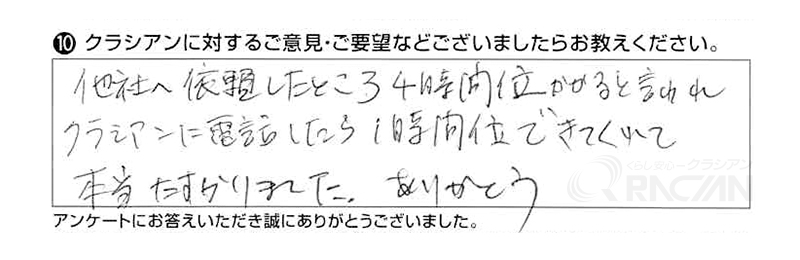 ⑩ クラシアンに対するご意見・ご要望などございましたらお教えください。
他社へ依頼したところ4時間位かかると言われ
クラシアンに電話したら1時間位できてくれて
本当たすかりました。ありがとう
くらし安心クラシアン
QRACIAN
アンケートにお答えいただき誠にありがとうございました。